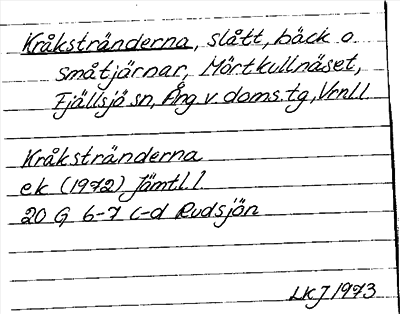 Kråkstränderna, slått, bäck o
småtjärnar, Mörtkullnäset,
Fjällsjö sn, Ång. v. doms. tg, Vrnl.l
Kråkstränderna
ek (1972) Jämtl. l
20 G 6-7 c-d Rudsjön
LKJ 1973